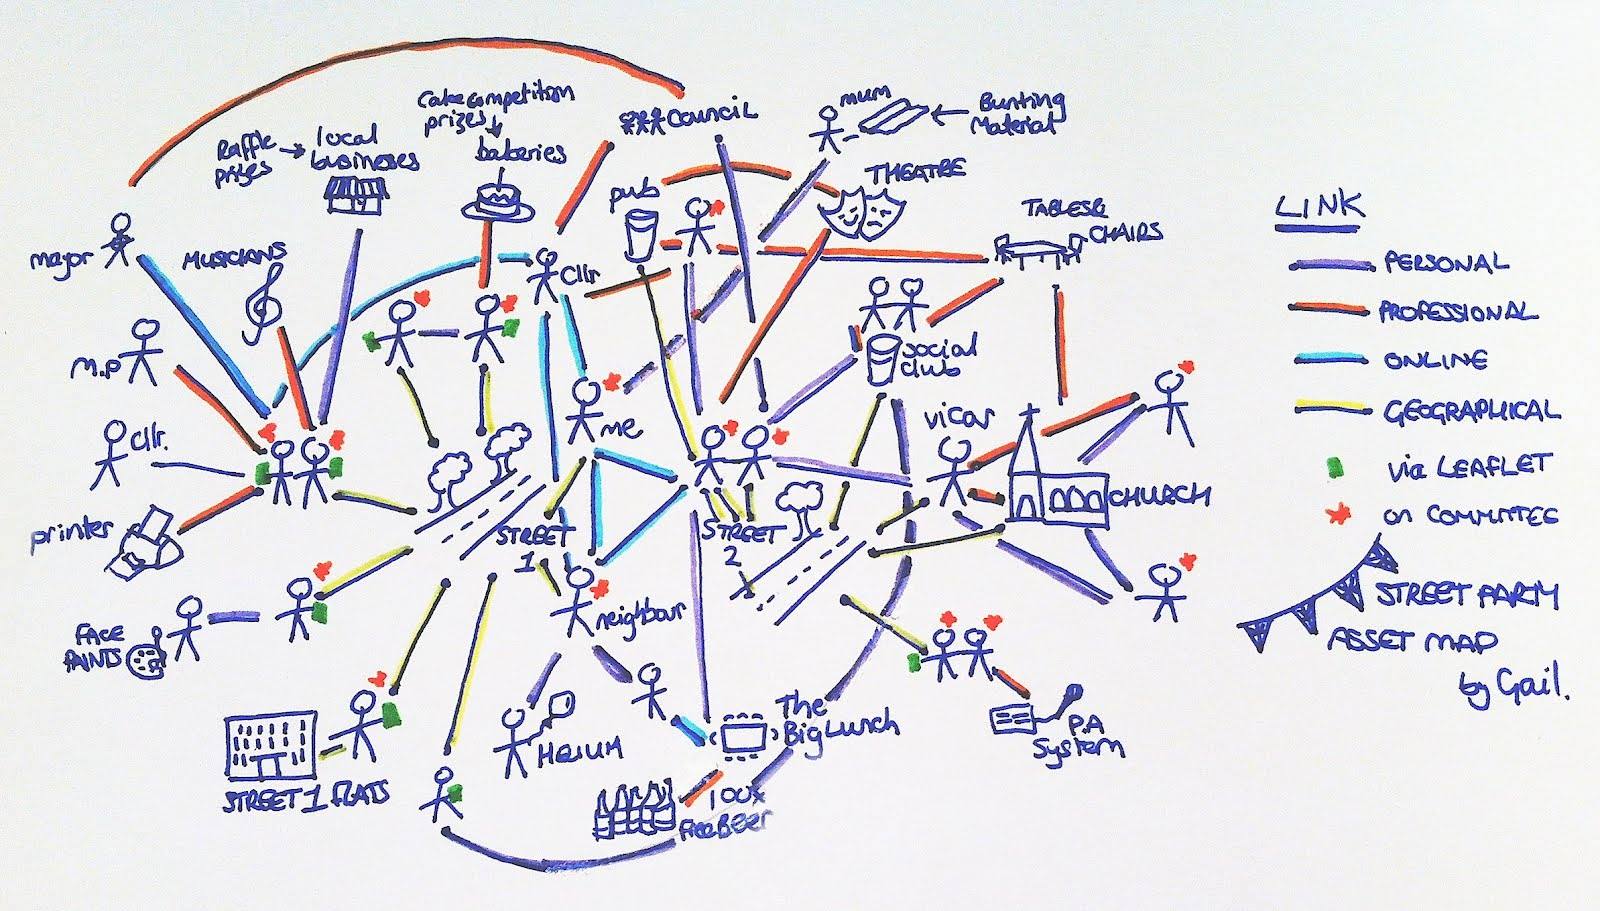 Cake competition
prizes
bakeries
Raffle
prizes
local
businesses
Council
mum
Bunting
Material
pub
THEATRE
TABLES &
CHAIRS
mayor
MUSICIANS
Cllr
M.P
Cllr.
me
social
club
vicar
CHURCH
printer
STREET
1
STREET
2
neighbour
FACE
PAINTS
HELIUM
STREET 1 FLATS
The
Big Lunch
100x
Free BEER
P.A
System
LINK
PERSONAL
PROFESSIONAL
ONLINE
GEOGRAPHICAL
via LEAFLET
on COMMITTEE
STREET PARTY
ASSET MAP
by Gail.